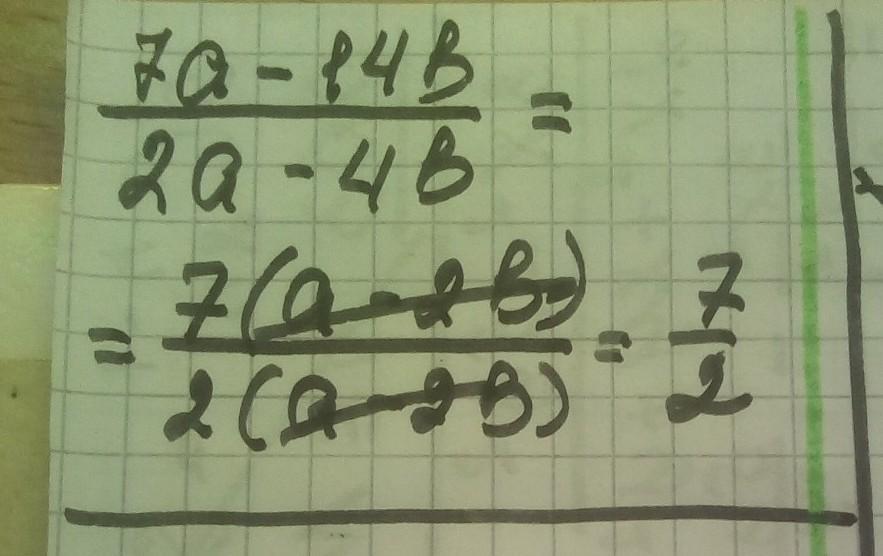 7a - 14b
2a - 4b
=
= 7(a - 2b)
2(a - 2b)
= 7
2